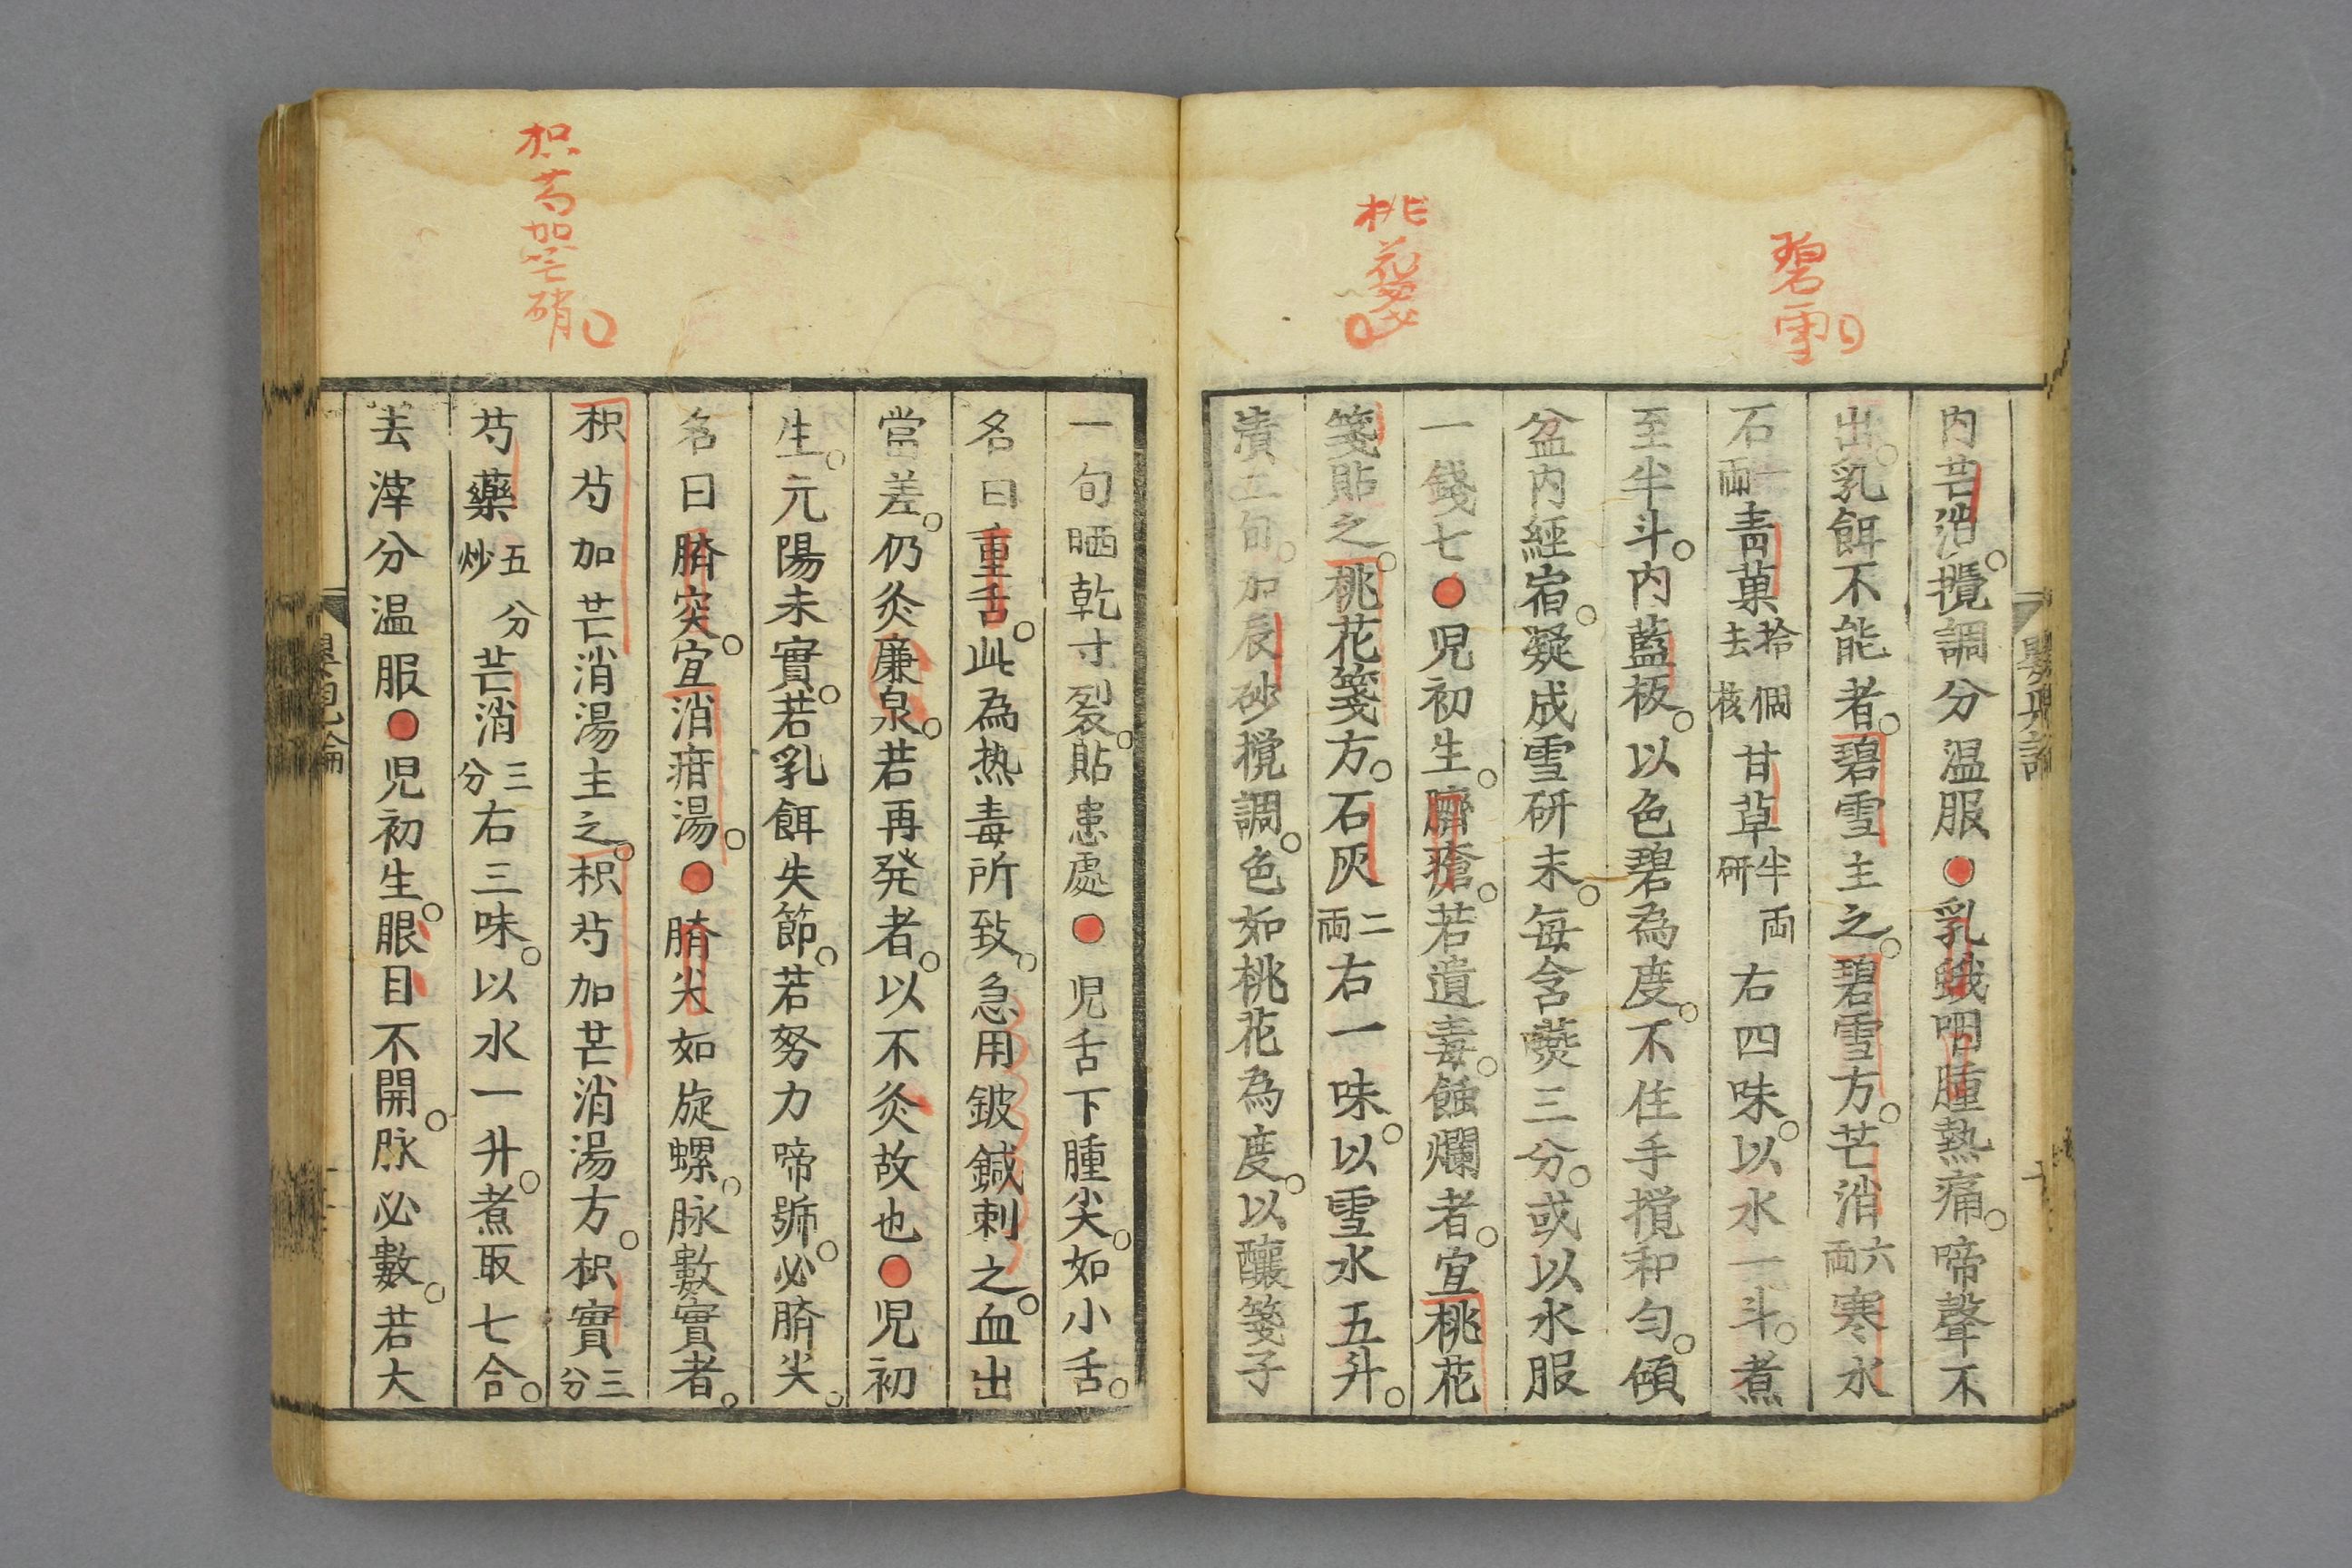 碧雪
桃花箋
枳芍加芒硝
内芒消攪調分温服●乳蛾咽腫熱痛啼聲不
出乳餌不能者碧雪主之碧雪方芒消六両寒水
石一両青菓拾個去核甘草半両研右四味以水一斗煮
至半斗内藍板以色碧為度不住手攪和勻傾
盆内經宿凝成雪研末每含嚥三分或以水服
一錢七●児初生臍瘡若遺毒蝕爛者宜桃花
箋貼之桃花箋方石灰二両右一味以雪水五升
漬五旬加辰砂攪調色如桃花為度以釀箋子
一旬晒乾寸裂貼患處●児舌下腫尖如小舌
名曰重舌此為热毒所致急用鈹鍼刺之血出
當差仍灸廉泉若再発者以不灸故也●児初
生元陽未實若乳餌失節若努力啼號必臍尖
名曰臍突宜消疳湯●臍尖如旋螺脉數實者
枳芍加芒消湯主之枳芍加芒消湯方枳實三分
芍藥五分炒芒消三分右三味以水一升煮取七合
去滓分温服●児初生眼目不開脉必數若大
嬰児論